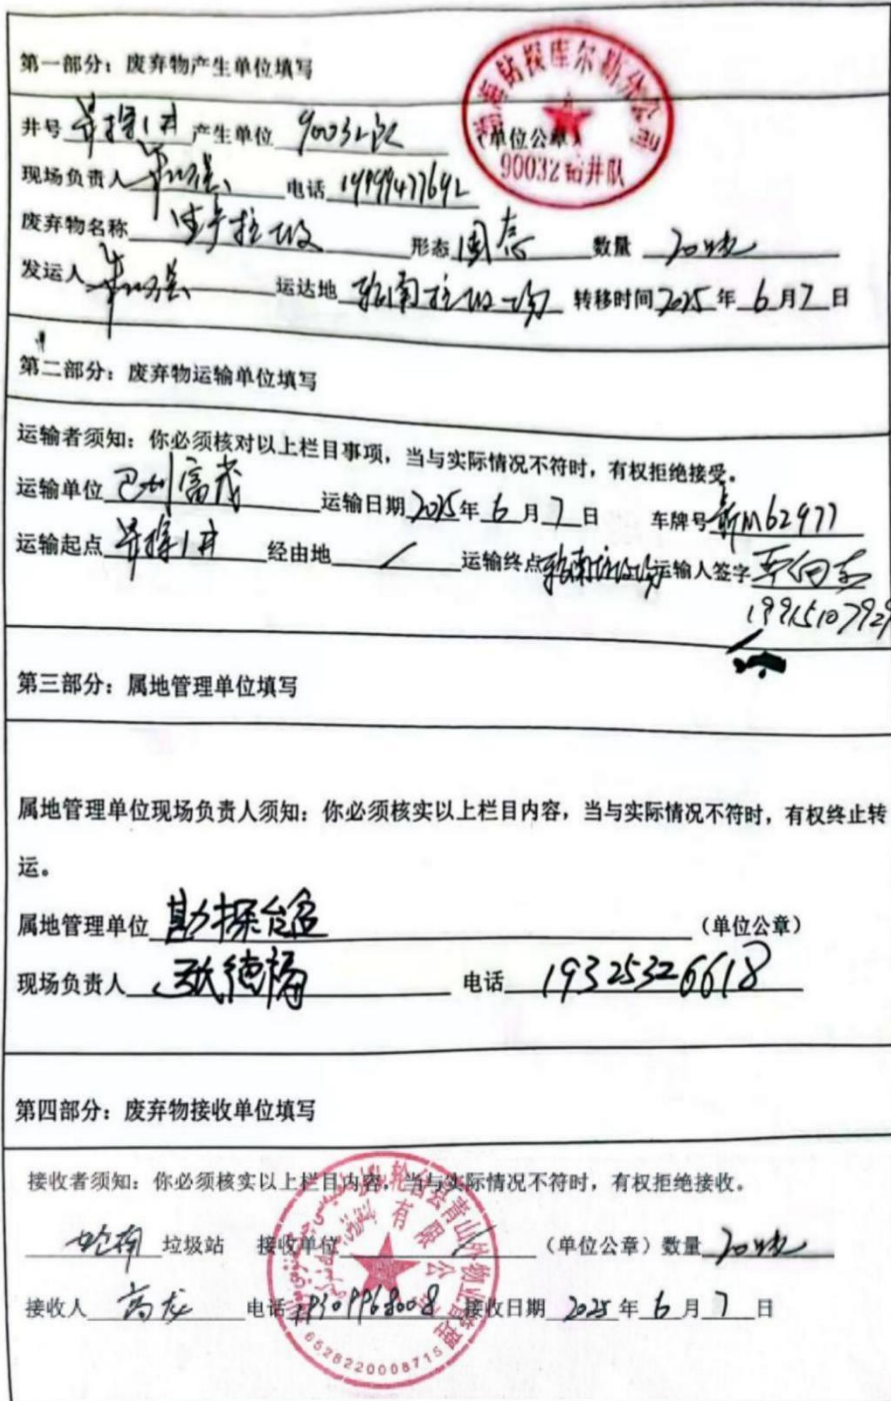 第一部分：废弃物产生单位填写
渤海钻探库尔勒分公司
90032钻井队
井号 探1井 产生单位 90032队 （单位公章）
现场负责人 电话 19999477692
废弃物名称 生产垃圾 形态 固态 数量 20吨
发运人 运达地 轮南垃圾场 转移时间 2025 年 6 月 7 日
第二部分：废弃物运输单位填写
运输者须知：你必须核对以上栏目事项，当与实际情况不符时，有权拒绝接受。
运输单位 巴州富茂 运输日期 2025 年 6 月 7 日 车牌号 新M62977
运输起点 探1井 经由地 / 运输终点 轮南垃圾场 运输人签字
19915107929
第三部分：属地管理单位填写
属地管理单位现场负责人须知：你必须核实以上栏目内容，当与实际情况不符时，有权终止转
运。
属地管理单位 勘探 （单位公章）
现场负责人 张德福 电话 19325326618
第四部分：废弃物接收单位填写
接收者须知：你必须核实以上栏目内容，当与实际情况不符时，有权拒绝接收。
轮南 垃圾站 接收单位 （单位公章）数量 20吨
接收人 高龙 电话 接收日期 2025 年 6 月 7 日
轮台县青山外物业管理
有限公司
6528220008715